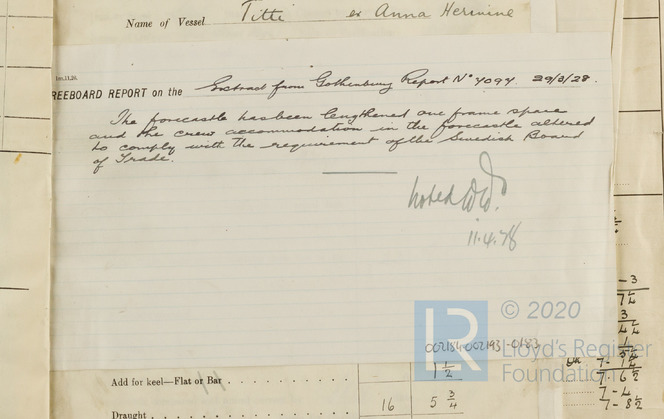 Name of Vessel Titti ex Anna Hermine
Ims.11.20.
REEBOARD REPORT on the Extract from Gothenburg Report No 4094 29/3/28.
The forecastle has been lengthened one frame space
and the crew accommodation in the forecastle altered
to comply with the requirement of the Swedish Board
of Trade.
noted
11.4.28
© 2020
LR
Lloyd's Register
Foundation
002184-002193-0183
1 1/2
Add for keel—Flat or Bar
Draught 16 5 3/4
- 3
7 1/4
3
4 1/4
6 1/2
7 - 4
7 - 8 1/2